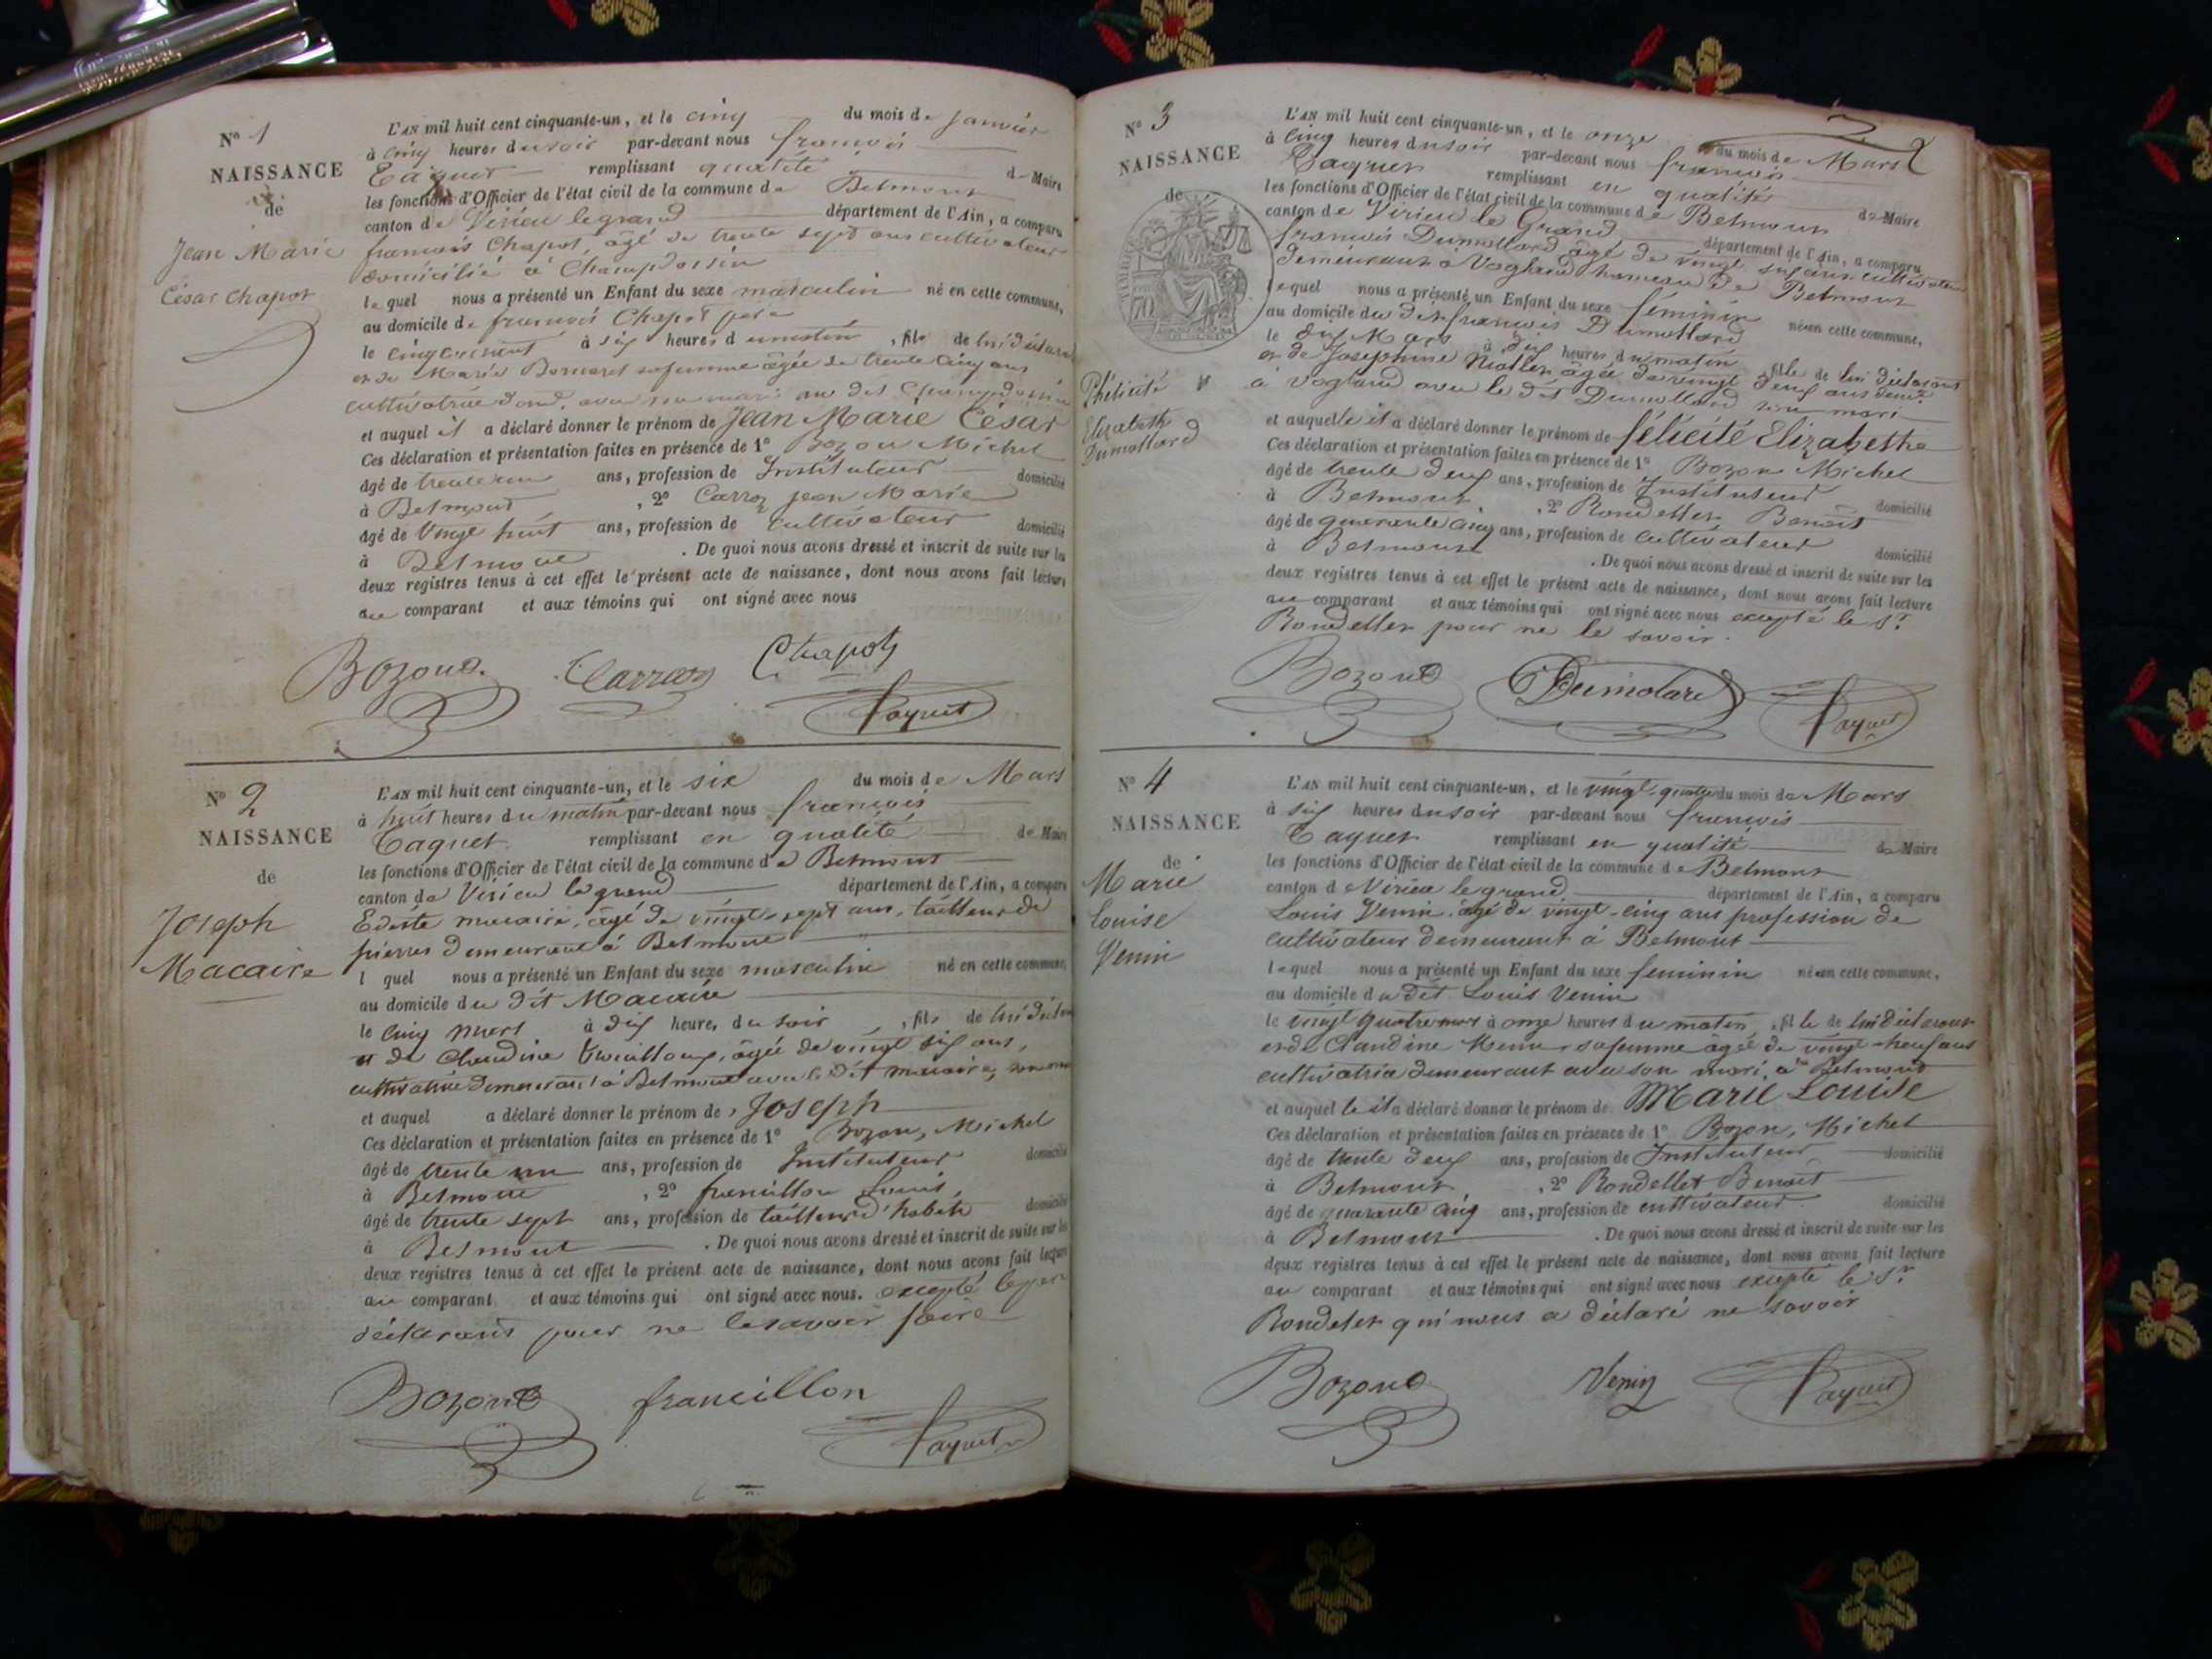 N° 1
NAISSANCE
de
Jean Marie
César Chapot
L'AN mil huit cent cinquante-un, et le cinq du mois de Janvier
à cinq heures du soir par-devant nous françois
remplissant qualité de Maire
les fonctions d'Officier de l'état civil de la commune de Belmont
canton de Virieu legrand département de l'Ain, a comparu
francois Chapot, âgé de trente sept ans cultivateur
domicilié à Champdossin
lequel nous a présenté un Enfant du sexe masculin né en cette commune,
au domicile de francois Chapot père
le cinq courant à six heures du matin, fils de lui déclarant
et de Marie sa femme âgée de trente cinq ans
cultivatrice avec son mari au dit Champdossin
et auquel il a déclaré donner le prénom de Jean Marie César
Ces déclaration et présentation faites en présence de 1° Bozon Michel
âgé de trente un ans, profession de Instituteur domicilié
à Belmont, 2° Carraz jean Marie
âgé de Vingt huit ans, profession de cultivateur domicilié
à Belmont. De quoi nous avons dressé et inscrit de suite sur les
deux registres tenus à cet effet le présent acte de naissance, dont nous avons fait lecture
au comparant et aux témoins qui ont signé avec nous
Bozond Carraz Chapot
N° 2
NAISSANCE
de
Joseph
Macaire
L'AN mil huit cent cinquante-un, et le six du mois de Mars
à huit heures du matin par-devant nous françois
remplissant en qualité de Maire
les fonctions d'Officier de l'état civil de la commune de Belmont
canton de Virieu le grand département de l'Ain, a comparu
macaire, âgé de vingt-sept ans, tailleur de
pierres demeurant à Belmont
l quel nous a présenté un Enfant du sexe masculin né en cette commune,
au domicile du dit Macaire
le cinq mars à dix heures du soir, fils de lui déclarant
et de Claudine âgée de vingt six ans,
cultivatrice demeurant à Belmont avec le dit macaire, son mari
et auquel a déclaré donner le prénom de, Joseph
Ces déclaration et présentation faites en présence de 1° Bozon, Michel
âgé de trente un ans, profession de Instituteur domicilié
à Belmont, 2° francillon Louis,
âgé de trente sept ans, profession de tailleur d'habits domicilié
à Belmont. De quoi nous avons dressé et inscrit de suite sur les
deux registres tenus à cet effet le présent acte de naissance, dont nous avons fait lecture
au comparant et aux témoins qui ont signé avec nous. excepté le père
déclarant pour ne le savoir faire
Bozond francillon
N° 3
NAISSANCE
de
Phélicité
Elizabeth
Dumollard
L'AN mil huit cent cinquante-un, et le onze du mois de Mars
à cinq heures du soir par-devant nous francois
remplissant en qualité de Maire
les fonctions d'Officier de l'état civil de la commune de Belmont
canton de Virieu le Grand département de l'Ain, a comparu
francois Dumollard âgé de vingt six ans cultivateur
demeurant à Vogland hameau de Belmont
lequel nous a présenté un Enfant du sexe féminin né en cette commune,
au domicile du dit francois Dumollard
le dix Mars à dix heures du matin, fille de lui déclarant
et de Josephine âgée de vingt deux ans
à Vogland avec le dit Dumollard son mari
et auquelle il a déclaré donner le prénom de félicité Elizabethe
Ces déclaration et présentation faites en présence de 1° Bozon Michel
âgé de trente deux ans, profession de Instituteur domicilié
à Belmont, 2° Rondellet Benoît
âgé de quarante cinq ans, profession de cultivateur domicilié
à Belmont. De quoi nous avons dressé et inscrit de suite sur les
deux registres tenus à cet effet le présent acte de naissance, dont nous avons fait lecture
au comparant et aux témoins qui ont signé avec nous excepté le Sr
Rondellet pour ne le savoir.
Bozond Dumolard
N° 4
NAISSANCE
de
Marie
Louise
Venin
L'AN mil huit cent cinquante-un, et le vingt-quatre du mois de Mars
à six heures du soir par-devant nous francois
remplissant en qualité de Maire
les fonctions d'Officier de l'état civil de la commune de Belmont
canton de Virieu le grand département de l'Ain, a comparu
Louis Venin, âgé de vingt-cinq ans profession de
cultivateur demeurant à Belmont
lequel nous a présenté un Enfant du sexe feminin né en cette commune,
au domicile du dit Louis Venin
le vingt quatre mars à onze heures du matin, fille de lui déclarant
et de Claudine sa femme agée de vingt-neuf ans
cultivatrice demeurant avec son mari, à Belmont
et auquel le il a déclaré donner le prénom de Marie Louise
Ces déclaration et présentation faites en présence de 1° Bozon, Michel
âgé de trente deux ans, profession de Instituteur domicilié
à Belmont, 2° Rondellet Benoît
âgé de quarante cinq ans, profession de cultivateur domicilié
à Belmont. De quoi nous avons dressé et inscrit de suite sur les
deux registres tenus à cet effet le présent acte de naissance, dont nous avons fait lecture
au comparant et aux témoins qui ont signé avec nous excepté le Sr
Rondelet qui nous a déclaré ne savoir
Bozond Venin